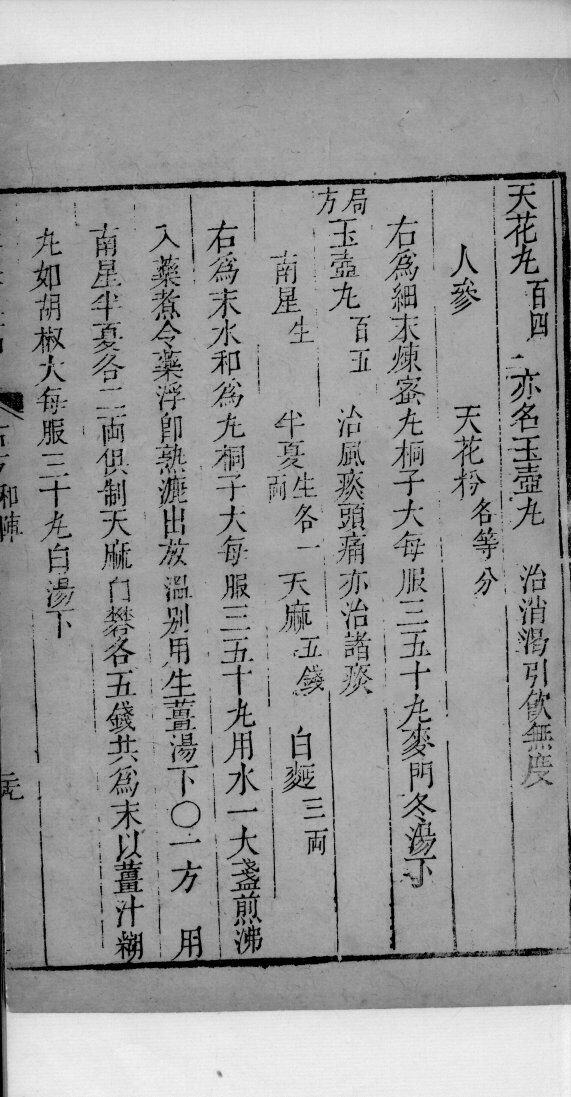 天花丸 百四二 亦名玉壺丸 治消渴引飲無度
人參 天花粉各等分
右為細末煉蜜丸桐子大每服三五十丸麥門冬湯下
局方玉壺丸 百五 治風痰頭痛亦治諸痰
南星生 半夏生各一兩 天麻五錢 白麪三兩
右為末水和為丸桐子大每服三五十丸用水一大盞煎沸
入藥煮令藥浮即熟漉出放溫別用生薑湯下〇一方 用
南星半夏各二兩俱制天麻白礬各五錢共為末以薑汁糊
丸如胡椒大每服三十丸白湯下
古方 和陣